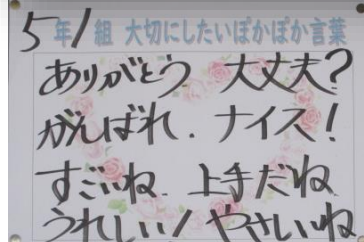 5年1組 大切にしたいぽかぽか言葉
ありがとう 大丈夫?
がんばれ. ナイス!
すごいね 上手だね
うれしい! やさしいね